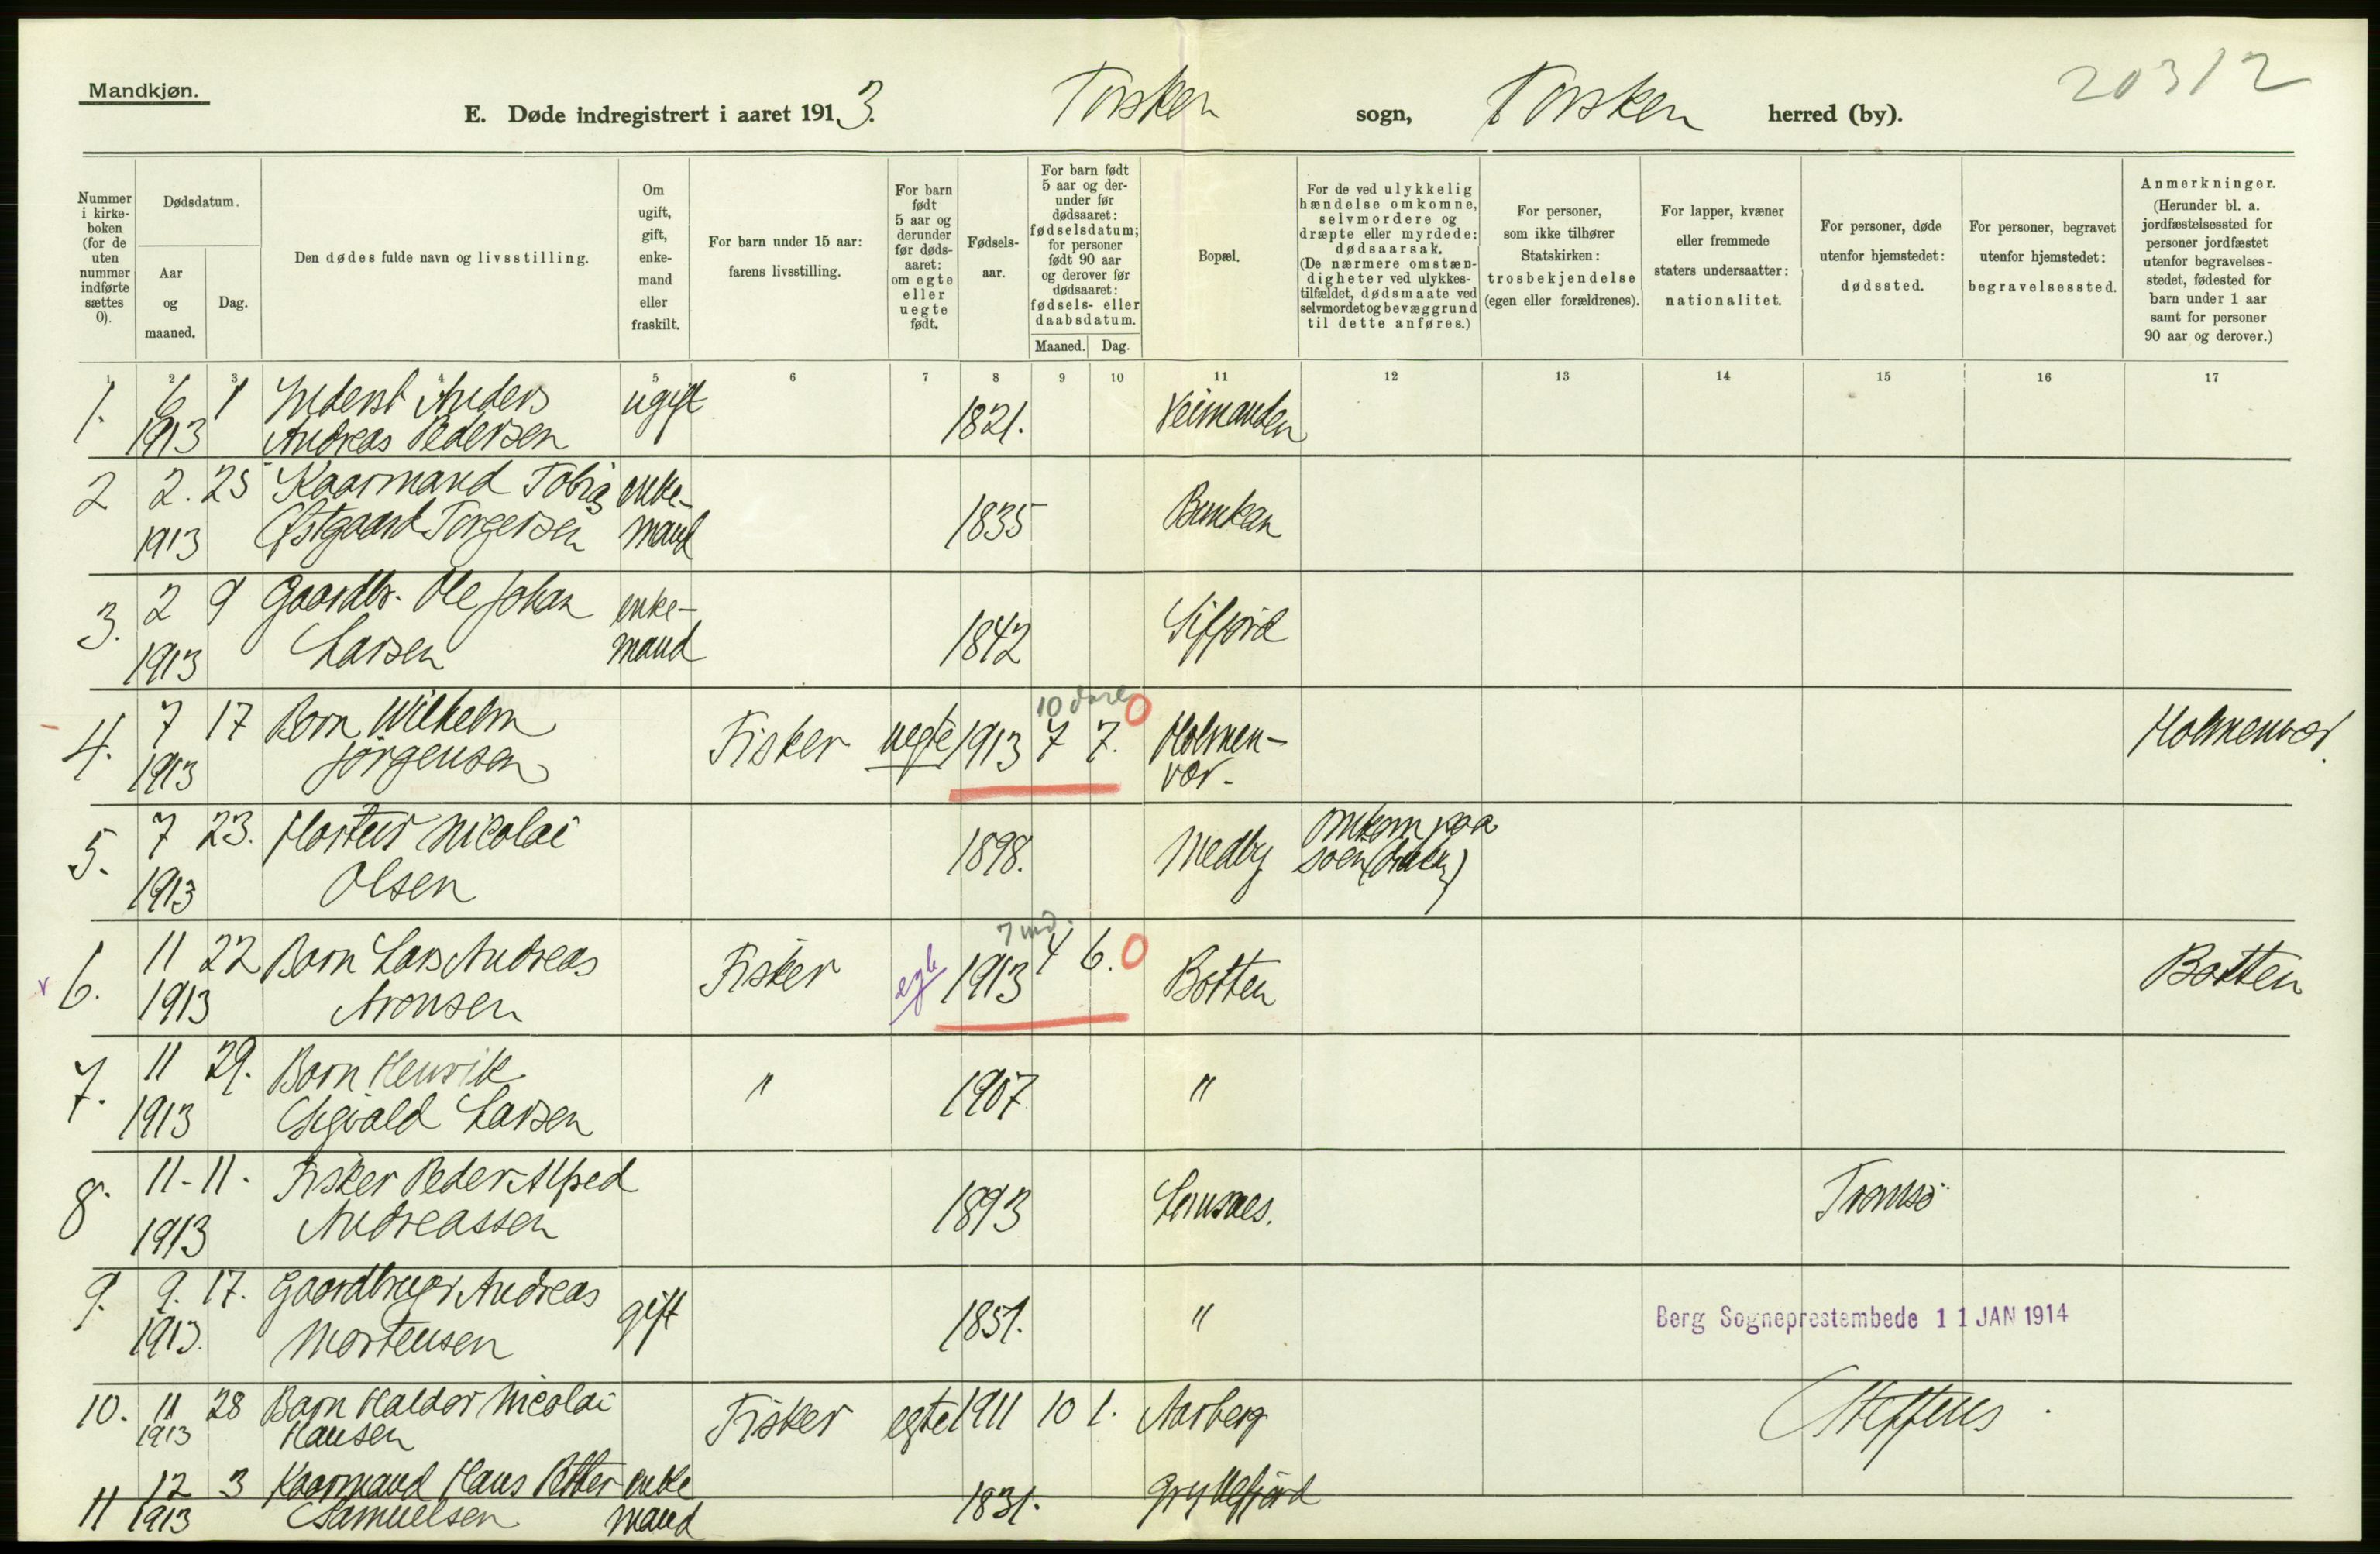 Mandkjøn.
20312
E. Døde indregistrert i aaret 1913. Torsken sogn, Torsken herred (by).
Nummer i kirke-boken (for de uten nummer indførte sættes 0).
Dødsdatum.
Aar og maaned.
Dag.
Den dødes fulde navn og livsstilling.
Om ugift, gift, enke-mand eller fraskilt.
For barn under 15 aar: farens livsstilling.
For barn født 5 aar og derunder før døds-aaret: om egte eller uegte født.
Fødsels-aar.
For barn født 5 aar og der-under før dødsaaret: fødselsdatum; for personer født 90 aar og derover før dødsaaret: fødsels- eller daabsdatum.
Maaned. Dag.
Bopæl.
For de ved ulykkelig hændelse omkomne, selvmordere og dræpte eller myrdede: dødsaarsak. (De nærmere omstæn-digheter ved ulykkes-tilfældet, dødsmaate ved selvmordet og bevæggrund til dette anføres.)
For personer, som ikke tilhører Statskirken: trosbekjendelse (egen eller forældrenes).
For lapper, kvæner eller fremmede staters undersaatter: nationalitet.
For personer, døde utenfor hjemstedet: dødssted.
For personer, begravet utenfor hjemstedet: begravelsessted.
Anmerkninger. (Herunder bl. a. jordfæstelsessted for personer jordfæstet utenfor begravelses-stedet, fødested for barn under 1 aar samt for personer 90 aar og derover.)
1 2 3 4 5 6 7 8 9 10 11 12 13 14 15 16 17
1. 6 1 Inderst Anders ugift 1821. Veimanden
1913 Andreas Pedersen
2 2. 25 Kaarmand Tobias enke- 1835 Bunkan
1913 Østgaard Torgersen mand
3. 2 9 Gaardbr. Ole Johan enke- 1842 Sifjord
1913 Larsen mand
10 dage
4. 7 17 Barn Wilhelm Fisker uegte 1913 7 7. 0 Holmen- Holmenvær.
1913 Jörgensen vær-
5. 7 23. Hartvir Nicolai 1898. Medby omkom paa
1913 Olsen søen (drukn)
7 md.
6. 11 22 Barn Lars Andreas Fisker egte 1913 4 6. 0 Botten Botten
1913 Aronsen
7. 11 29. Barn Henrik " 1907 "
1913 Sigvald Larsen
8. 11- 11. Fisker Peder Alfred 1893 Tromsö
1913 Andreassen
9. 9. 17. Gaardbruger Andreas gift 1851. "
1913. Mortensen
Berg Sogneprestembede 11 JAN 1914
10. 11 28 Barn Haldor Nicolai Fisker egte 1911 10 1. Aarberg
1913 Hansen
Steffens
11 12 3 Kaarmand Hans Petter enke 1831. Gryllefjord
1913 Samuelsen mand